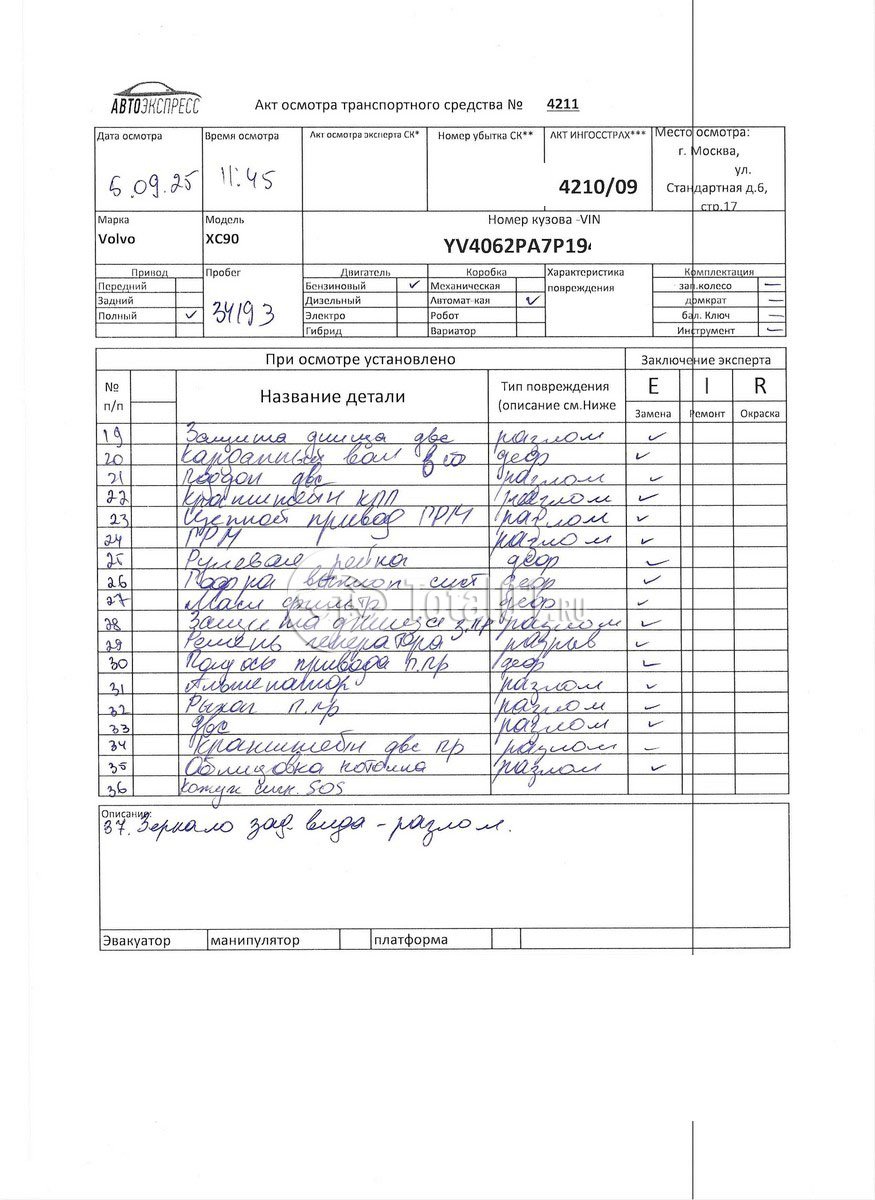 АВТОЭКСПРЕСС
Акт осмотра транспортного средства № 4211
Дата осмотра Время осмотра Акт осмотра эксперта СК* Номер убытка СК** АКТ ИНГОССТРАХ*** Место осмотра:
5.09.25 11:45 4210/09 г. Москва,
ул.
Стандартная д.6,
стр.17
Марка Модель Номер кузова -VIN
Volvo XC90 YV4062PA7P194
Привод Пробег Двигатель Коробка Характеристика Комплектация
Передний Бензиновый ✓ Механическая повреждения зап.колесо —
Задний 34193 Дизельный Автомат-кая ✓ домкрат —
Полный ✓ Электро Робот бал. Ключ —
Гибрид Вариатор Инструмент —
При осмотре установлено Заключение эксперта
№ п/п Название детали Тип повреждения (описание см.Ниже E I R
Замена Ремонт Окраска
19 Защита днища двс разлом ✓
20 Карданный вал деф ✓
21 Поддон двс разлом ✓
22 Кронштейн КПП разлом ✓
23 Цепной привод ГРМ разлом ✓
24 ГРМ разлом ✓
25 Рулевая рейка деф ✓
26 выхлоп сист деф ✓
27 Масл фильтр деф ✓
28 Защита днища з.пр разлом ✓
29 Ремень генератора разрыв ✓
30 Полуось привода п.пр деф ✓
31 Альтенатор разлом ✓
32 Рычаг п.пр разлом ✓
33 двс разлом ✓
34 Кранштейн двс пр разлом –
35 Облицовка потолка разлом ✓
36 Кожух сигн. SOS
Total01.RU
Описание:
37. Зеркало зад вида - разлом.
Эвакуатор манипулятор платформа